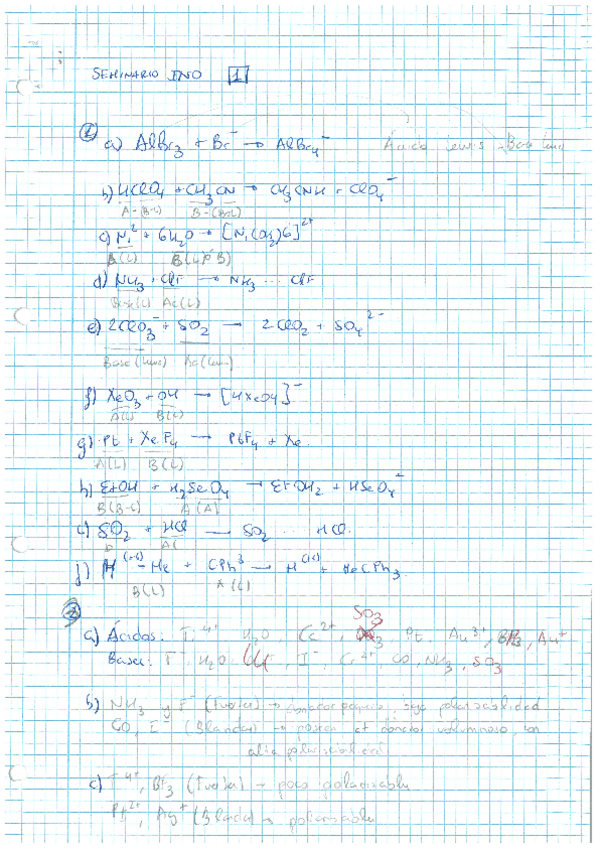 SEMINARIO INO 1
① a) AlBr3 + Br⁻ → AlBr4⁻ Ácido Lewis - Base
b) HClO4 + CH3CN → CH3CNH + ClO4⁻
A-(B-L) B-(B-L)
c) Ni² + 6H2O → [Ni(OH2)6]²⁺
A(L) B(L)
d) NH3 + ClF → NH3 .... ClF
Base(L) Ac(L)
e) 2ClO3⁻ + SO2 → 2ClO2 + SO4²⁻
Base (Lewis) Ac(Lewis)
f) XeO3 + OH → [HXeO4]⁻
A(L) B(L)
g) Pt + XeF4 → PtF4 + Xe.
A(L) B(L)
h) EtOH + H2SeO4 → EtOH2 + HSeO4⁻
B(B-L) A(A)
SO2 + HCl → SO2 HCl.
j) - Me + CPh3 → + MeCPh3
B(L) A(L)
②
a) Ácidos: Ti⁴⁺ H2O SO3 Pt, Au³⁺, Au⁺
Base: H2O I⁻, CO, NH3, SO3
b) NH3 y F⁻ (Fuertes) → donador pequeño, baja polarizabilidad
CO, I⁻ (Blandas) → poseen át donador voluminoso, con
alta polarizabilidad
c) Ti⁴⁺, BF3 (Fuertes) → poco polarizable
Pt²⁺, Ag⁺ (Blandas) → polarizable